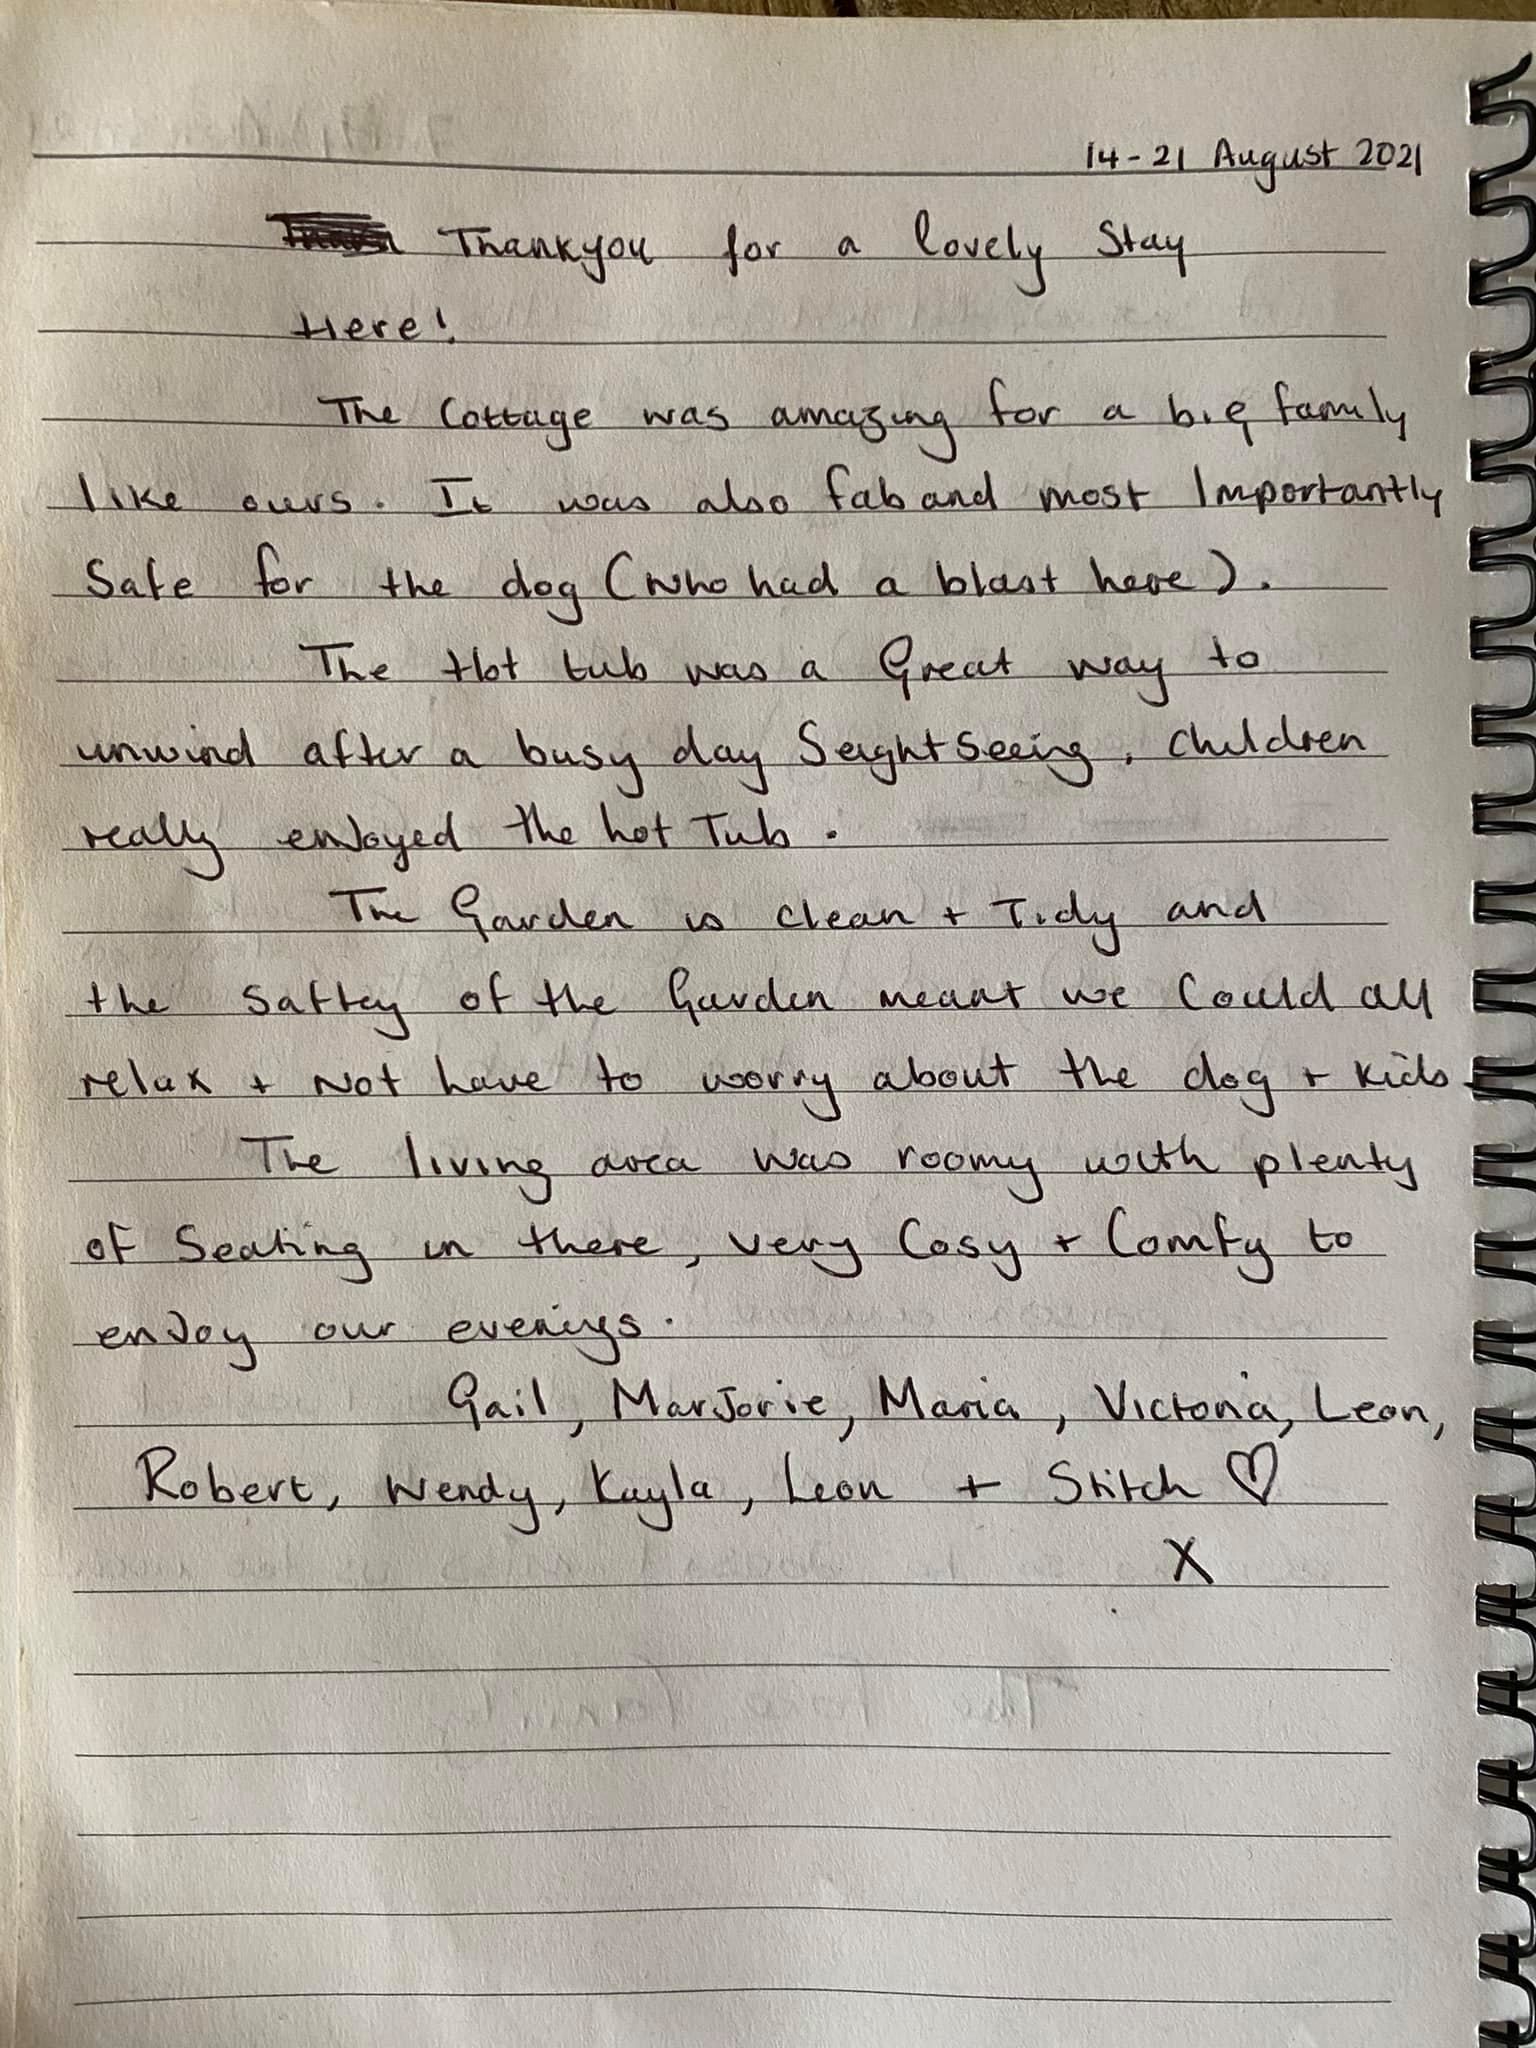 14-21 August 2021
Thankyou for a lovely Stay
Here!
The Cottage was amazing for a big family
like ours. It was also fab and most Importantly
Safe for the dog (who had a blast here).
The Hot tub was a Great way to
unwind after a busy day Seightseeing, children
really enjoyed the hot Tub.
The Garden is clean + Tidy and
the saftey of the Garden meant we Could all
relax + Not have to worry about the dog + kids.
The living area was roomy with plenty
of Seating in there, very Cosy + Comfy to
enjoy our evenings.
Gail, Marjorie, Maria, Victoria, Leon,
Robert, Wendy, Kayla, Leon + Stitch ♡
X